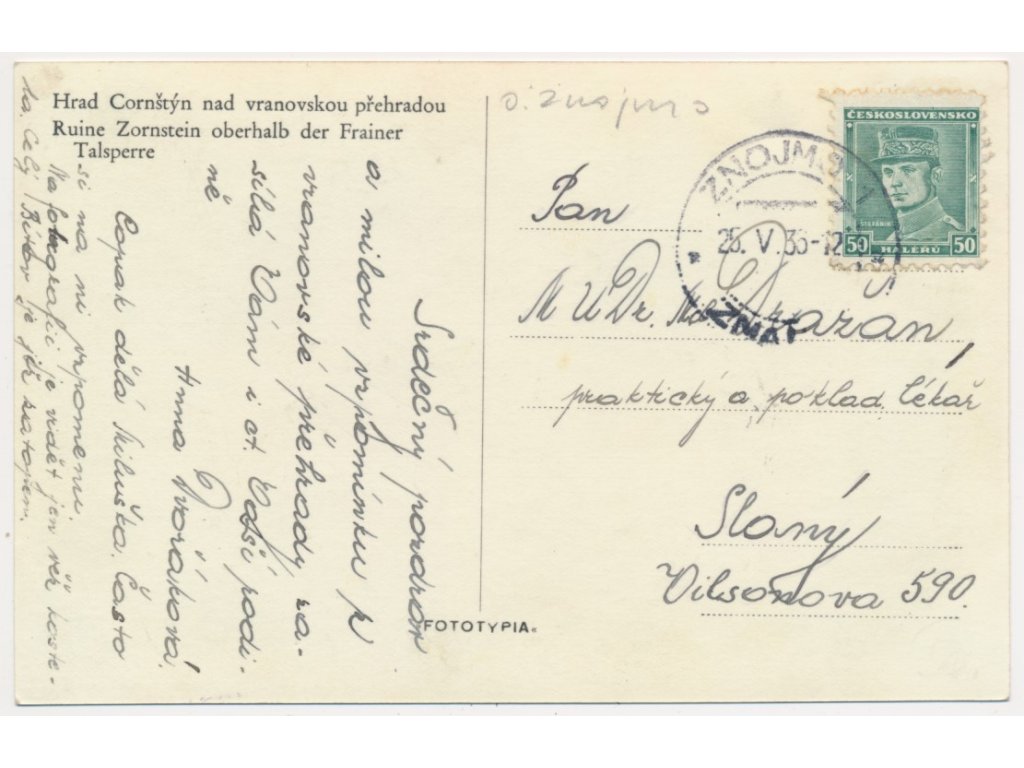 Hrad Cornštýn nad vranovskou přehradou
Ruine Zornstein oberhalb der Frainer
Talsperre
Srdečný pozdrav
a milou vzpomínku z
vranovské přehrady za-
sílá Vám i ct. Vaší rodi-
ně
Anna Dvořáková.
Copak dělá Miluška. Často
si na ni vzpomenu.
Na fotografii je vidět jen věž koste-
la. Celý Bítov je již zatopen.
FOTOTYPIA.
o. Znojmo
ČESKOSLOVENSKO
ŠTEFÁNIK
50 HALÉŘŮ 50
ZNOJMO 1
25. V. 36-12
ZNA
Pan
MUDr. Mil.
praktický a poklad. lékař
Slaný
Vilsonova 590.